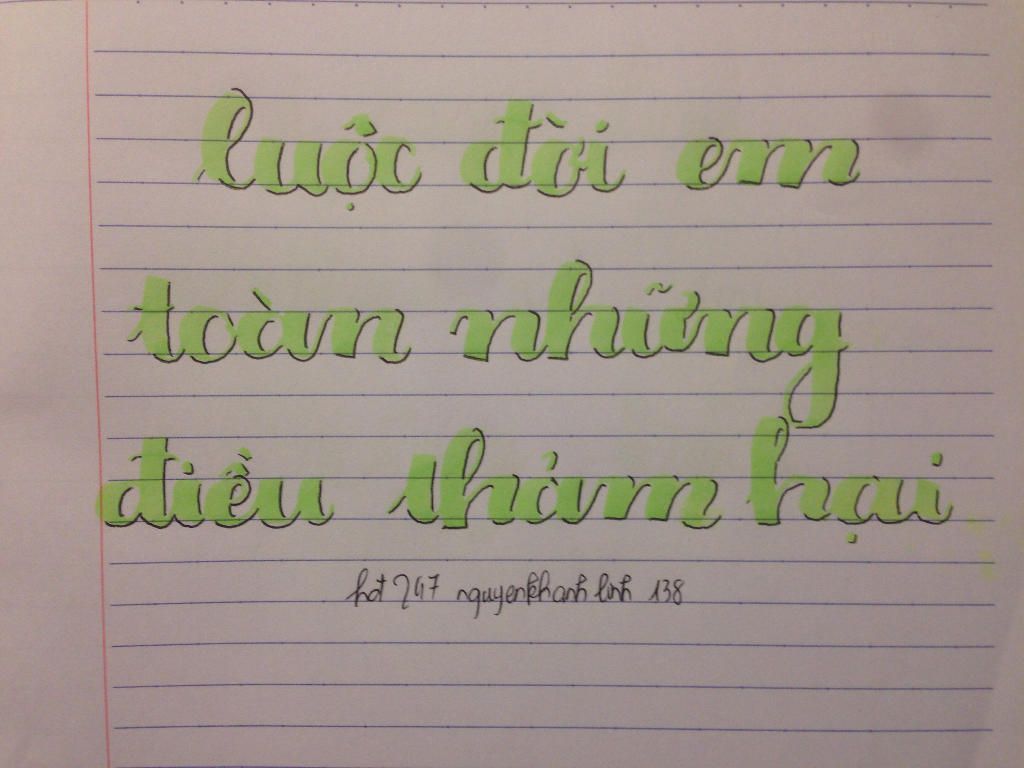 luộc đời em
toàn những
điều thảm hại
hđ 247 nguyenkhanh linh 138